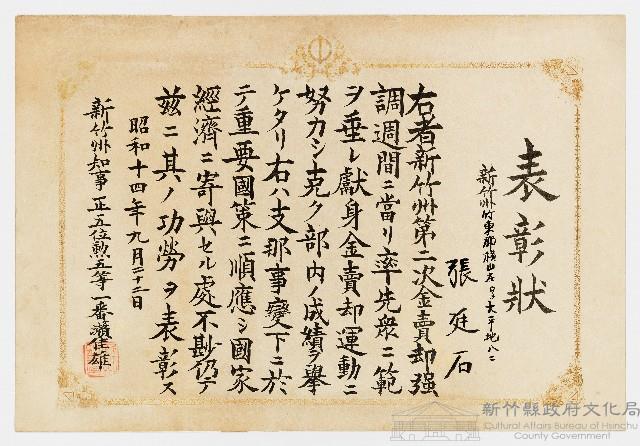 表彰狀
新竹州竹東郡橫山庄
大平地八二
張廷石
右者新竹州第二次金賣却强
調週間ニ當リ率先衆ニ範
ヲ垂レ獻身金賣却運動ニ
努力シ克ク部內ノ成績ヲ擧
ケタリ右ハ支那事變下ニ於
テ重要國策ニ順應シ國家
經濟ニ寄與セル處不尠仍テ
玆ニ其ノ功勞ヲ表彰ス
昭和十四年九月二十二日
新竹州知事正五位勲五等一番ヶ瀨佳雄
新竹縣政府文化局
Cultural Affairs Bureau of Hsinchu
County Government